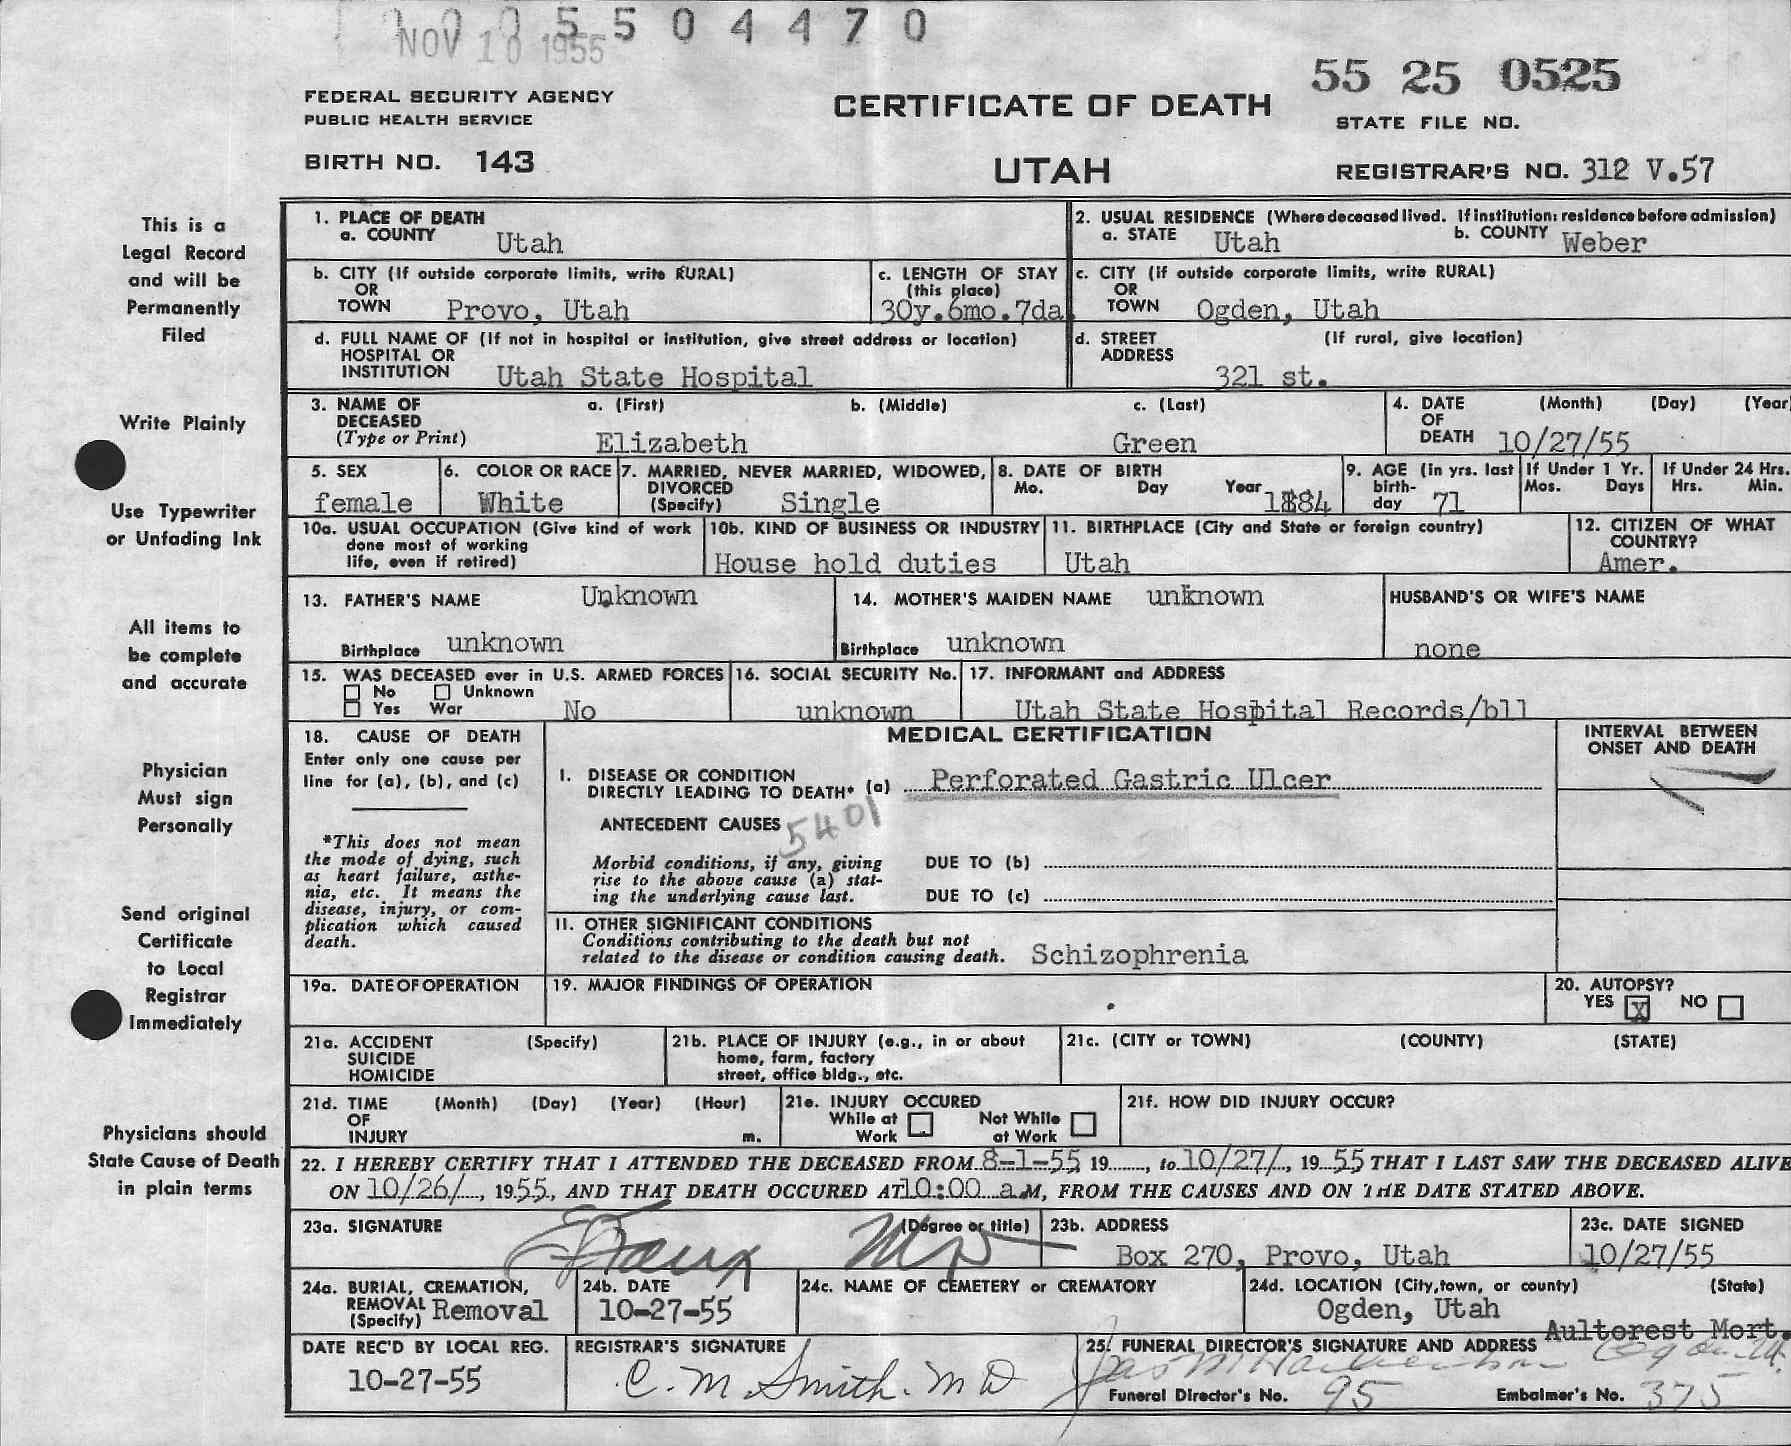 5 5 0 4 4 7 0
NOV 10 1955
55 25 0525
FEDERAL SECURITY AGENCY
PUBLIC HEALTH SERVICE
CERTIFICATE OF DEATH
STATE FILE NO.
BIRTH NO. 143
UTAH
REGISTRAR'S NO. 312 V.57
This is a
Legal Record
and will be
Permanently
Filed
Write Plainly
Use Typewriter
or Unfading Ink
All items to
be complete
and accurate
Physician
Must sign
Personally
Send original
Certificate
to Local
Registrar
Immediately
Physicians should
State Cause of Death
in plain terms
1. PLACE OF DEATH
a. COUNTY Utah
2. USUAL RESIDENCE (Where deceased lived. If institution: residence before admission)
a. STATE Utah b. COUNTY Weber
b. CITY (If outside corporate limits, write RURAL)
OR
TOWN Provo, Utah
c. LENGTH OF STAY
(this place)
30y.6mo.7da
c. CITY (if outside corporate limits, write RURAL)
OR
TOWN Ogden, Utah
d. FULL NAME OF (If not in hospital or institution, give street address or location)
HOSPITAL OR
INSTITUTION Utah State Hospital
d. STREET (If rural, give location)
ADDRESS
321 st.
3. NAME OF a. (First) b. (Middle) c. (Last)
DECEASED
(Type or Print) Elizabeth Green
4. DATE (Month) (Day) (Year
OF
DEATH 10/27/55
5. SEX
female
6. COLOR OR RACE
White
7. MARRIED, NEVER MARRIED, WIDOWED,
DIVORCED
(Specify) Single
8. DATE OF BIRTH
Mo. Day Year 1884
9. AGE (in yrs. last
birth-
day 71
If Under 1 Yr.
Mos. Days
If Under 24 Hrs.
Hrs. Min.
10a. USUAL OCCUPATION (Give kind of work
done most of working
life, even if retired)
10b. KIND OF BUSINESS OR INDUSTRY
House hold duties
11. BIRTHPLACE (City and State or foreign country)
Utah
12. CITIZEN OF WHAT
COUNTRY?
Amer.
13. FATHER'S NAME Unknown
Birthplace unknown
14. MOTHER'S MAIDEN NAME unknown
Birthplace unknown
HUSBAND'S OR WIFE'S NAME
none
15. WAS DECEASED ever in U.S. ARMED FORCES
No Unknown
Yes War No
16. SOCIAL SECURITY No.
unknown
17. INFORMANT and ADDRESS
Utah State Hospital Records/bll
18. CAUSE OF DEATH
Enter only one cause per
line for (a), (b), and (c)
*This does not mean
the mode of dying, such
as heart failure, asthe-
nia, etc. It means the
disease, injury, or com-
plication which caused
death.
MEDICAL CERTIFICATION
INTERVAL BETWEEN
ONSET AND DEATH
I. DISEASE OR CONDITION
DIRECTLY LEADING TO DEATH* (a) Perforated Gastric Ulcer
ANTECEDENT CAUSES 5401
Morbid conditions, if any, giving
rise to the above cause (a) stat-
ing the underlying cause last.
DUE TO (b)
DUE TO (c)
II. OTHER SIGNIFICANT CONDITIONS
Conditions contributing to the death but not
related to the disease or condition causing death. Schizophrenia
19a. DATE OF OPERATION
19. MAJOR FINDINGS OF OPERATION
20. AUTOPSY?
YES X NO
21a. ACCIDENT (Specify)
SUICIDE
HOMICIDE
21b. PLACE OF INJURY (e.g., in or about
home, farm, factory
street, office bldg., etc.
21c. (CITY or TOWN) (COUNTY) (STATE)
21d. TIME (Month) (Day) (Year) (Hour)
OF
INJURY m.
21e. INJURY OCCURED
While at Work Not While at Work
21f. HOW DID INJURY OCCUR?
22. I HEREBY CERTIFY THAT I ATTENDED THE DECEASED FROM 8-1-55 19......, to 10/27/..., 19 55 THAT I LAST SAW THE DECEASED ALIVE
ON 10/26/..., 1955, AND THAT DEATH OCCURED AT 10:00 a.M, FROM THE CAUSES AND ON THE DATE STATED ABOVE.
23a. SIGNATURE (Degree or title)
MD
23b. ADDRESS
Box 270, Provo, Utah
23c. DATE SIGNED
10/27/55
24a. BURIAL, CREMATION,
REMOVAL
(Specify) Removal
24b. DATE
10-27-55
24c. NAME OF CEMETERY or CREMATORY
24d. LOCATION (City, town, or county) (State)
Ogden, Utah
Aultorest Mort.
DATE REC'D BY LOCAL REG.
10-27-55
REGISTRAR'S SIGNATURE
C. M. Smith. MD
25. FUNERAL DIRECTOR'S SIGNATURE AND ADDRESS
Funeral Director's No. 95 Embalmer's No. 375